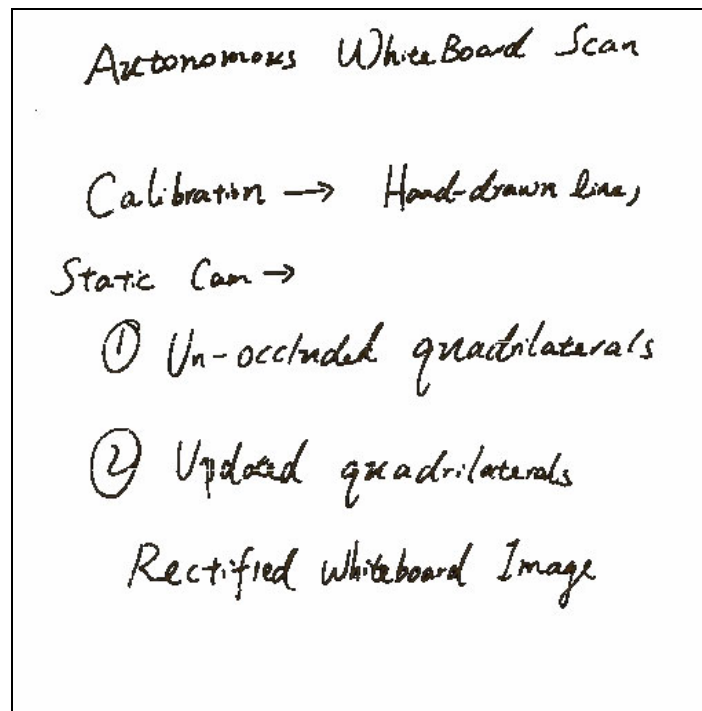 Autonomous WhiteBoard Scan
Calibration → Hand-drawn line,
Static Cam →
① Un-occluded quadrilaterals
② Updated quadrilaterals
Rectified Whiteboard Image